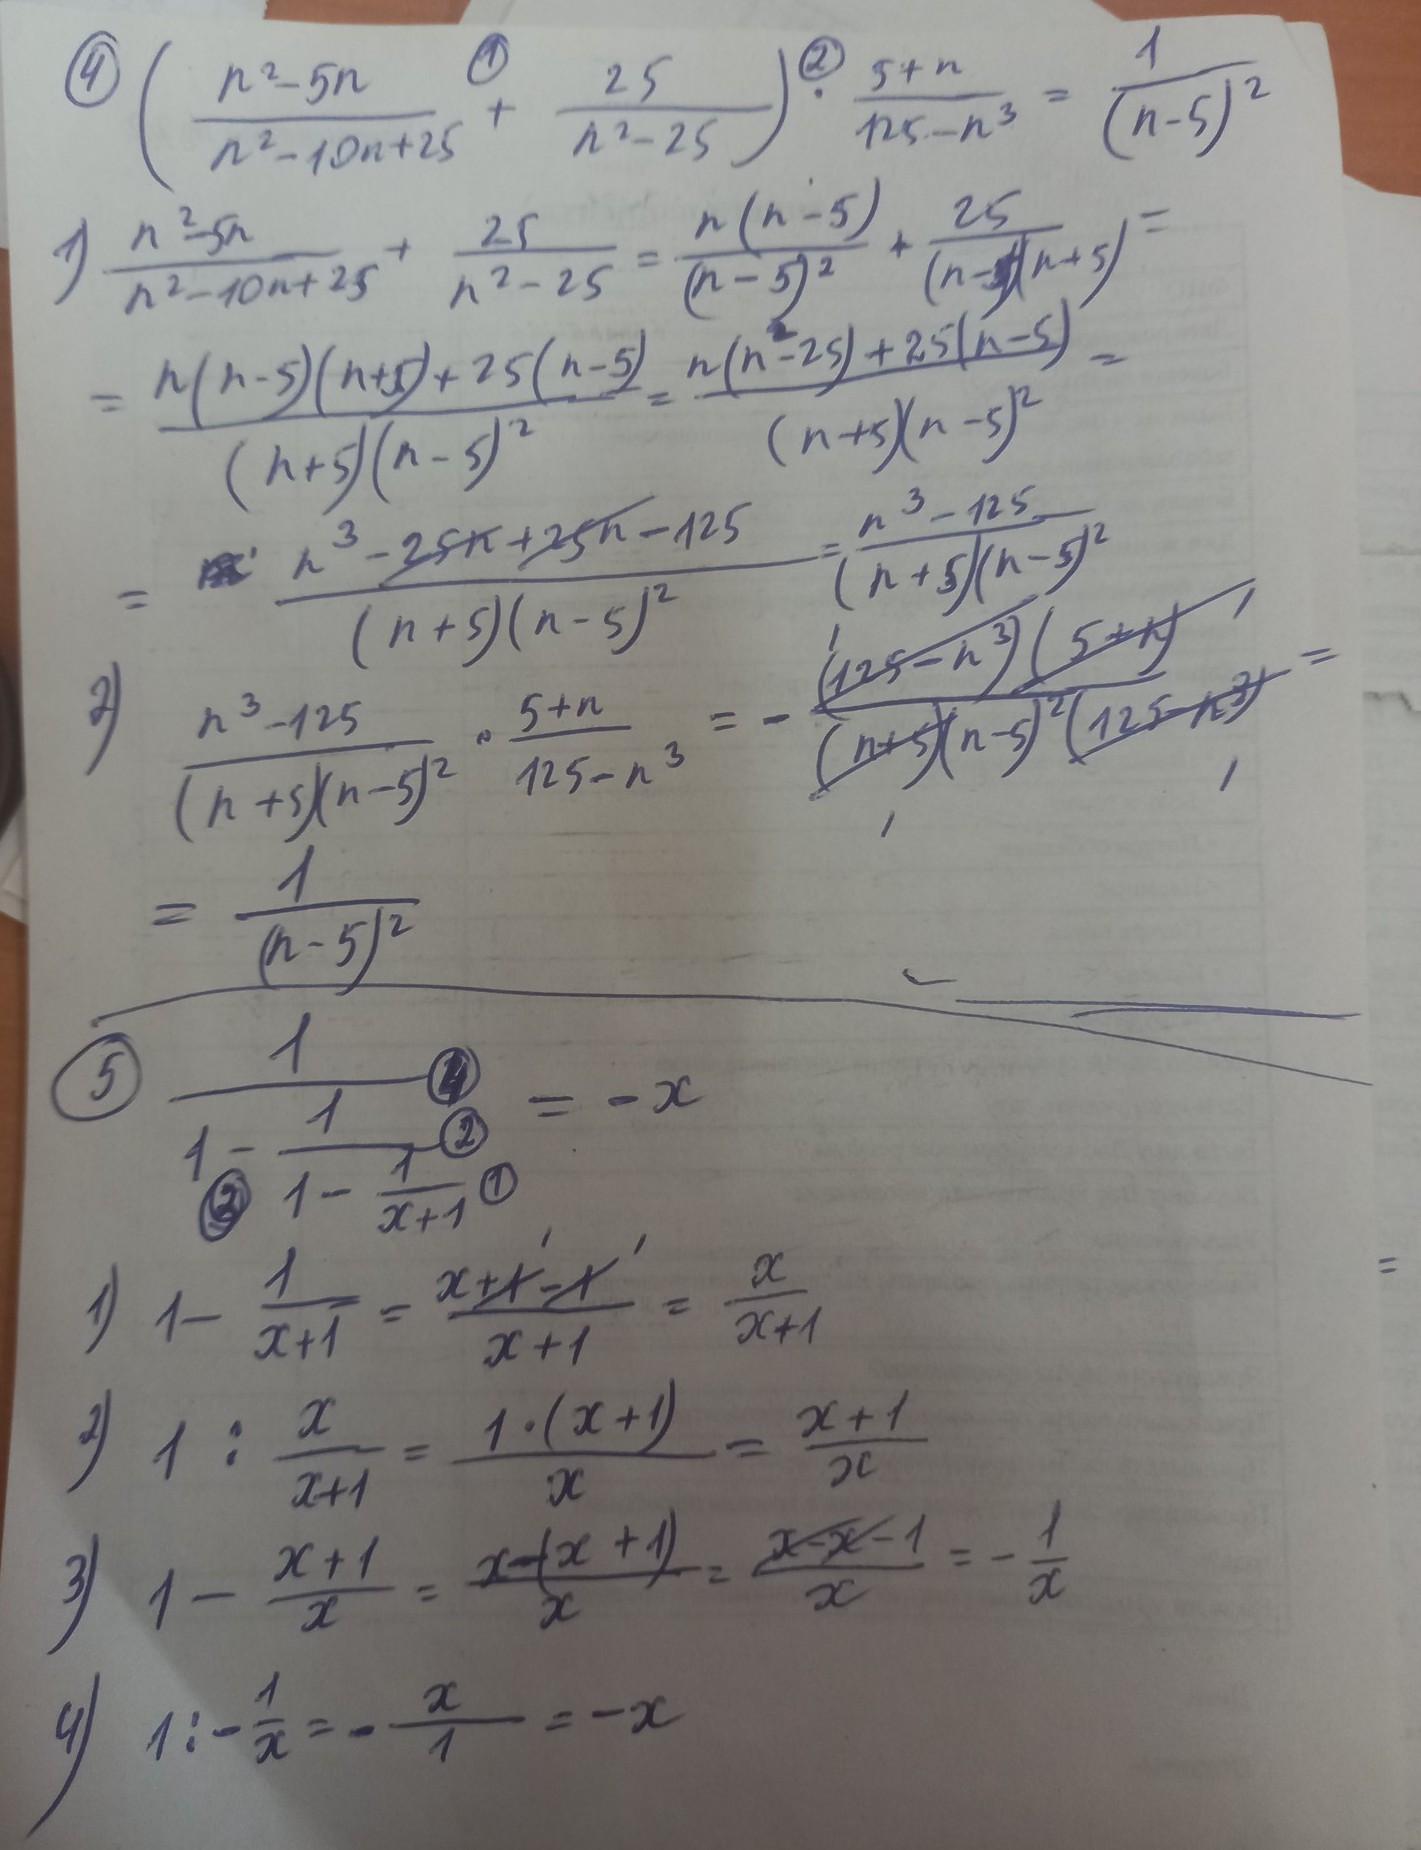 ④ ( (n²-5n)/(n²-10n+25) +① 25/(n²-25) ) ·② (5+n)/(125-n³) = 1/(n-5)²
1) (n²-5n)/(n²-10n+25) + 25/(n²-25) = n(n-5)/(n-5)² + 25/((n-5)(n+5)) =
= (n(n-5)(n+5)+25(n-5))/((n+5)(n-5)²) = (n(n²-25)+25(n-5))/((n+5)(n-5)²) =
= (n³-25n+25n-125)/((n+5)(n-5)²) = (n³-125)/((n+5)(n-5)²)
2) (n³-125)/((n+5)(n-5)²) · (5+n)/(125-n³) = - ((125-n³)(5+n))/((n+5)(n-5)²(125-n³)) =
= 1/(n-5)²
⑤ 1/(1 - 1/(1 - 1/(x+1))) = -x
④ ② ③ ①
1) 1 - 1/(x+1) = (x+1-1)/(x+1) = x/(x+1)
2) 1 : x/(x+1) = 1·(x+1)/x = (x+1)/x
3) 1 - (x+1)/x = (x-(x+1))/x = (x-x-1)/x = - 1/x
4) 1 : - 1/x = - x/1 = -x
=